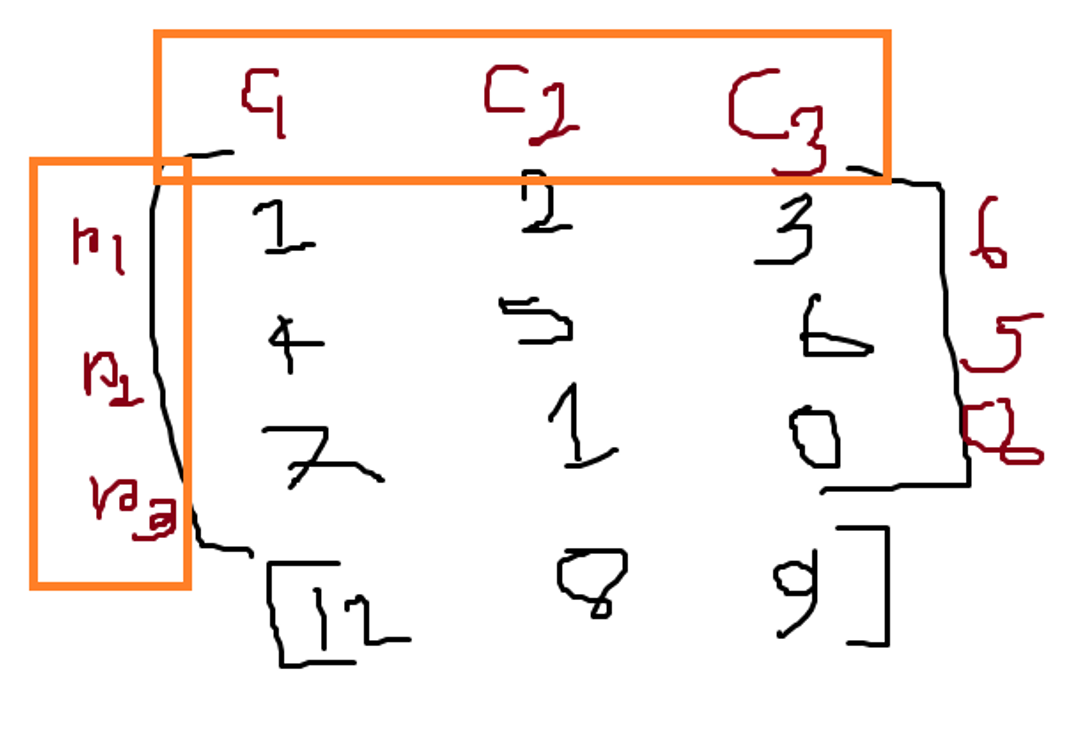 C1 C2 C3
r1 1 2 3 6
4 5 6 5
r2 7 1 0
r3
[12 8 9]